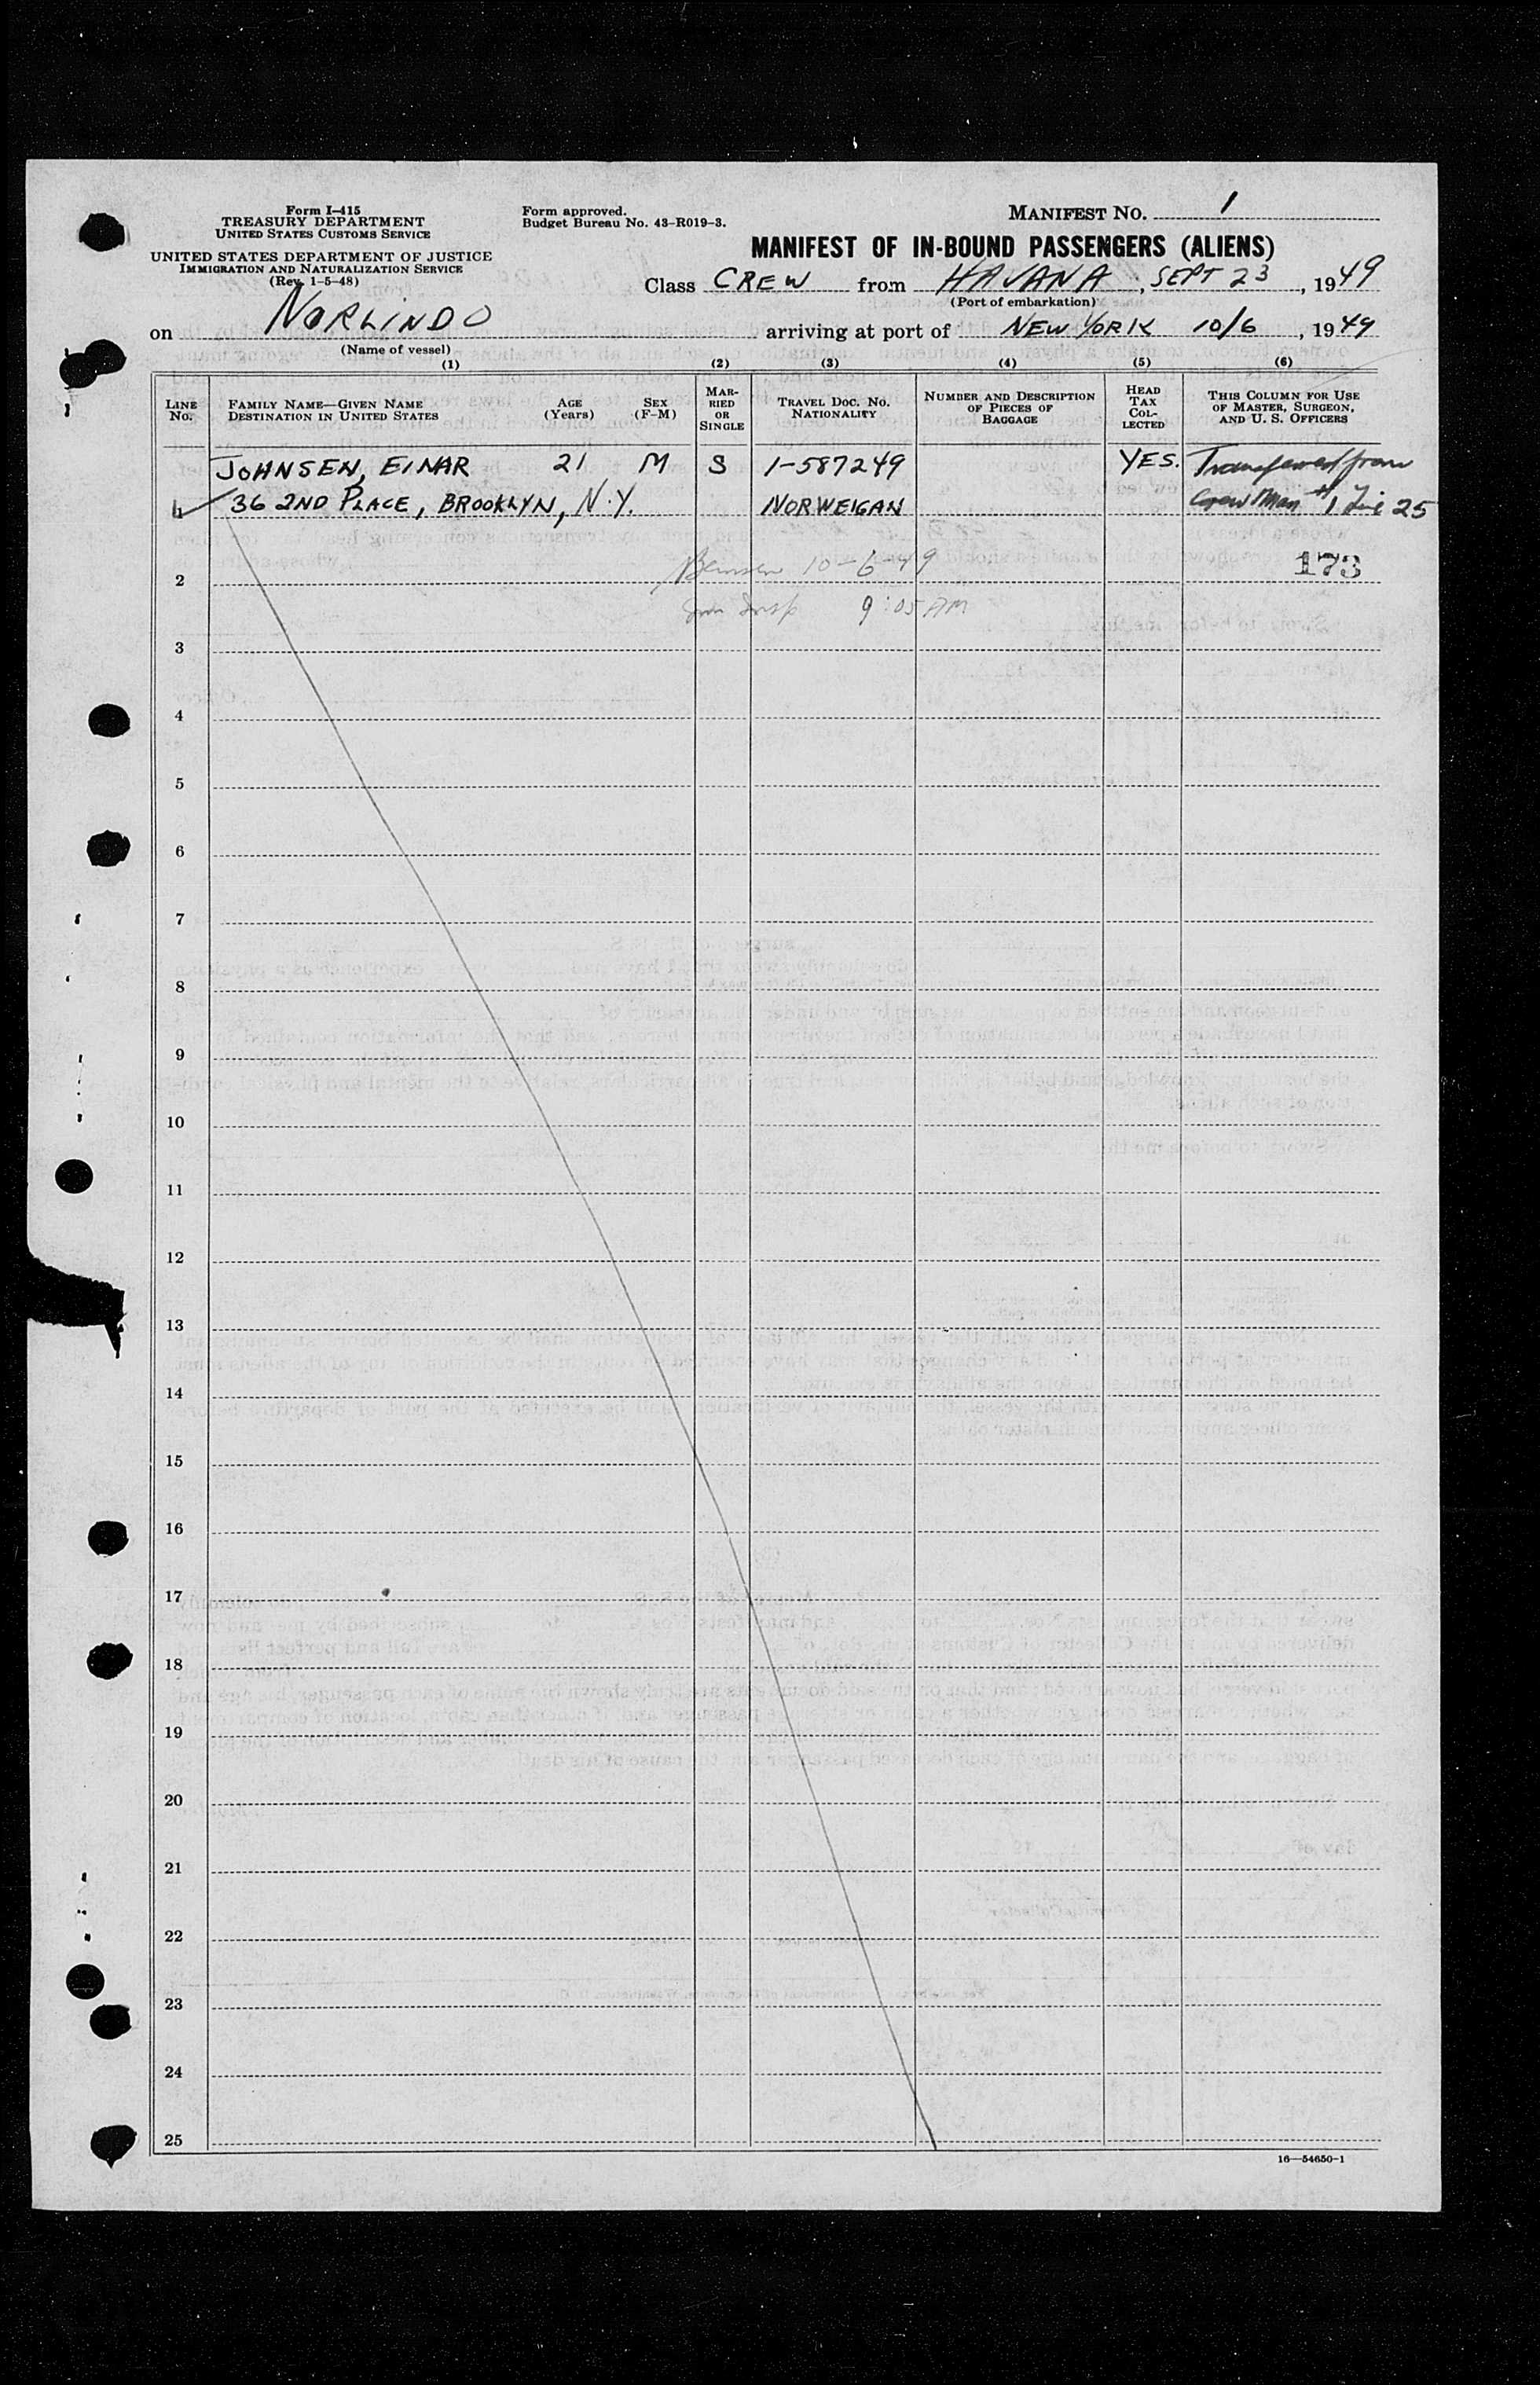 Form I-415
TREASURY DEPARTMENT
UNITED STATES CUSTOMS SERVICE
UNITED STATES DEPARTMENT OF JUSTICE
IMMIGRATION AND NATURALIZATION SERVICE
(Rev. 1-5-48)
Form approved.
Budget Bureau No. 43-R019-3.
MANIFEST NO. 1
MANIFEST OF IN-BOUND PASSENGERS (ALIENS)
Class CREW from HAVANA, SEPT 23, 1949
(Port of embarkation)
on NORLINDO arriving at port of NEW YORK 10/6, 1949
(Name of vessel)
(1) (2) (3) (4) (5) (6)
LINE No. FAMILY NAME—GIVEN NAME DESTINATION IN UNITED STATES AGE (Years) SEX (F-M) MARRIED OR SINGLE TRAVEL DOC. NO. NATIONALITY NUMBER AND DESCRIPTION OF PIECES OF BAGGAGE HEAD TAX COLLECTED THIS COLUMN FOR USE OF MASTER, SURGEON, AND U. S. OFFICERS
JOHNSEN, EINAR 21 M S 1-587249 YES. Transferred from
1 36 2ND PLACE, BROOKLYN, N.Y. NORWEIGAN Crew Man #1 Line 25
10-6-49 173
2
Insp 9:05 AM
3
4
5
6
7
8
9
10
11
12
13
14
15
16
17
18
19
20
21
22
23
24
25
16—54650-1